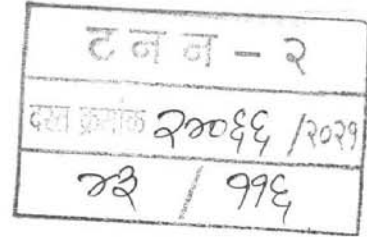 ट न न - २
दस्त क्रमांक २४०६६ /२०२१
४३ / ११६